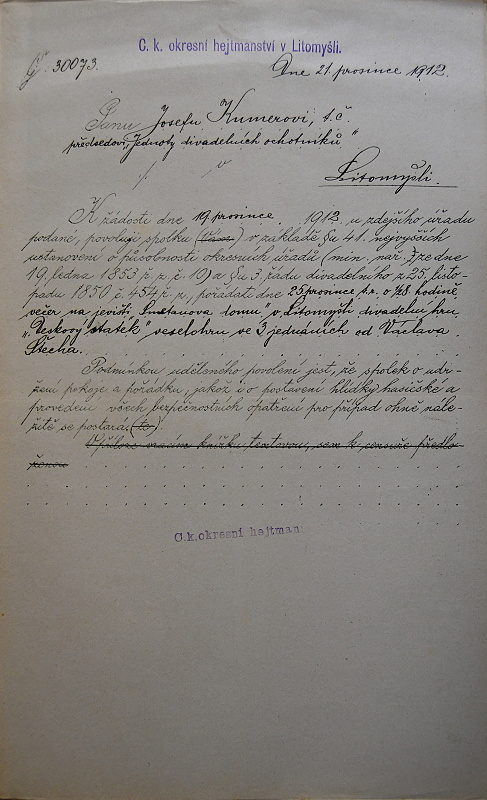 C. k. okresní hejtmanství v Litomyšli.
Čj. 30073. Dne 21. prosince 1912.
Panu Josefu Kumerovi, t. č.
předsedovi „Jednoty divadelních ochotníků"
v
Litomyšli.
K žádosti dne 19. prosince 1912. u zdejšího úřadu
podané, povoluji spolku (Vám) v základě §u 41. nejvyšších
ustanovení o působnosti okresních úřadů (min. nař. ze dne
19. ledna 1853 ř. z. č. 10) a §u 3. řádu divadelního z 25. listo-
padu 1850 č. 454 ř. z., pořádati dne 25 prosince t. r. o ½8 hodině
večer na jevišti „Smetanova domu" v Litomyšli divadelní hru
„Deskový statek" veselohru ve 3 jednáních od Václava
Štecha.
Podmínkou uděleného povolení jest, že spolek o udr-
žení pokoje a pořádku, jakož i o postavení hlídky hasičské a
provedení všech bezpečnostních opatření pro případ ohně nále-
žitě se postará (te).
V příloze vracím knížku textovou, sem k censuře předlo-
ženou
C.k.okresní hejtman: